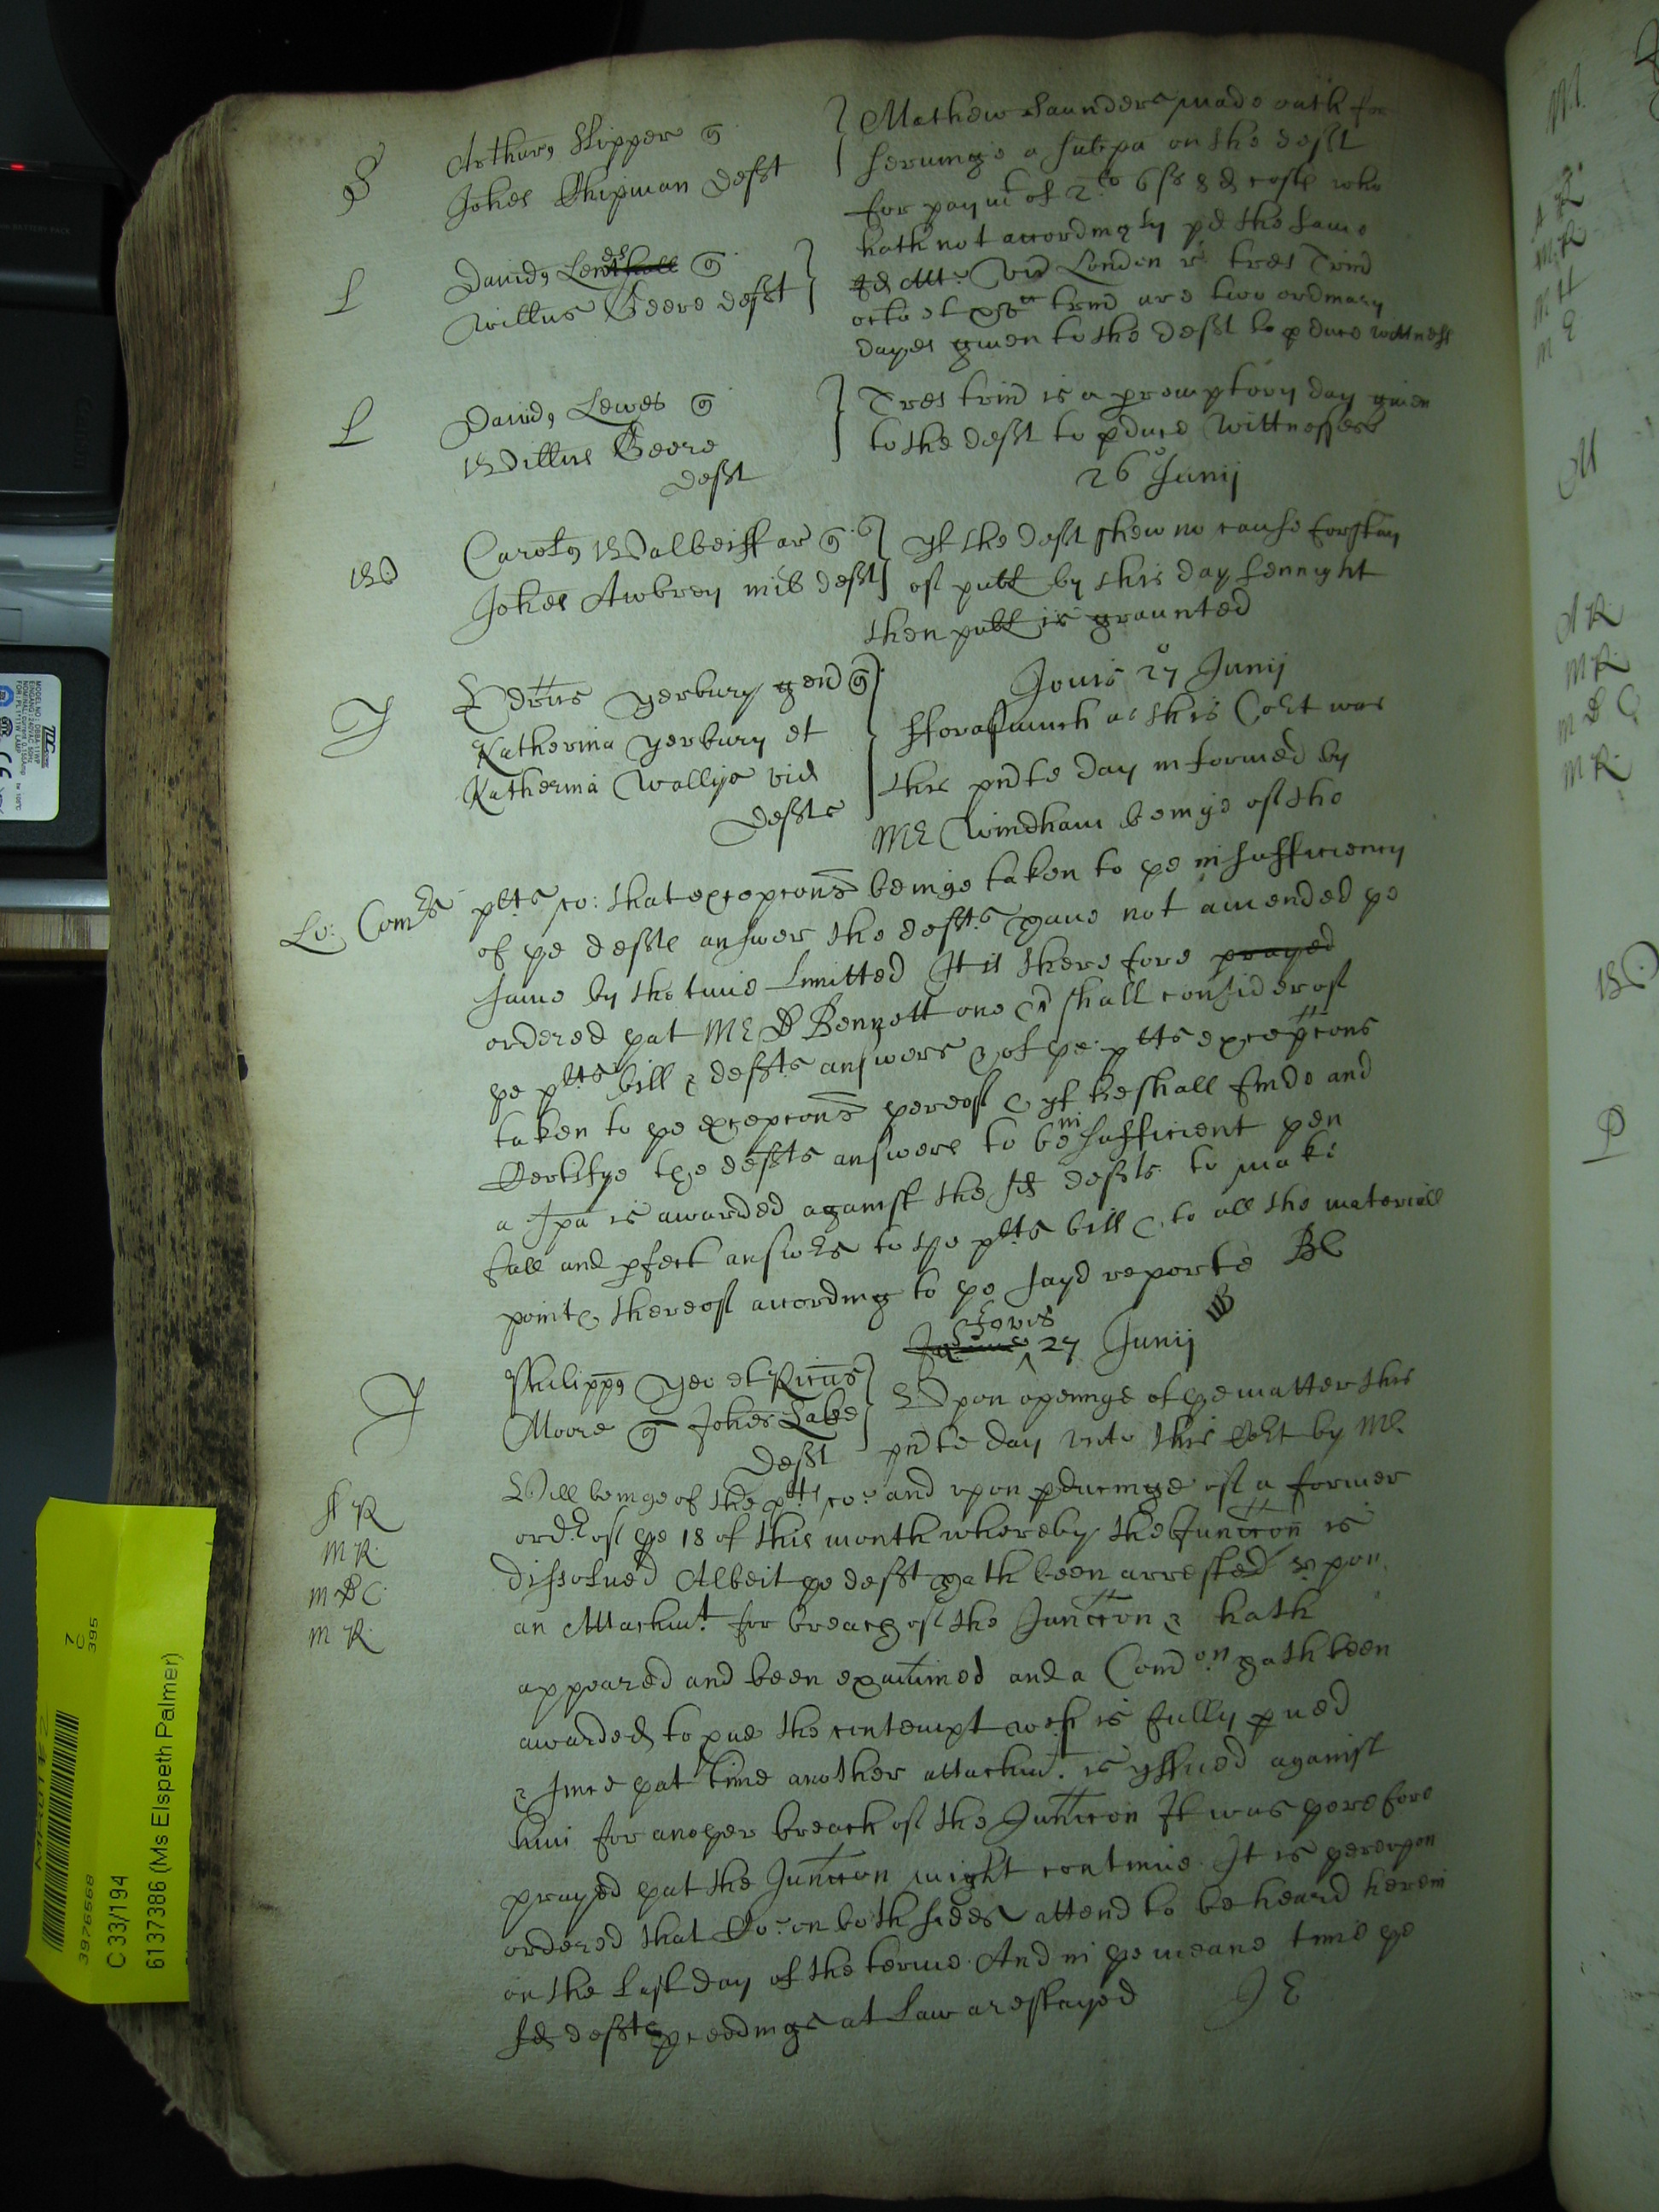 S
Arthur9 Skipper q
Johes Chipman Defft
Mathew Saunders made oath for
servinge a subpa on the defft
for paymt of 2 lo 6 ss 8 d costs who
hath not accordingly pd the same
L
David9 Lewes Lenthall q
Willus Geere defft
sd Att: Vic London r tres Trin
octo et trin are two ordinary
dayes given to the Defft to pduce wittness
L
David9 Lewes q
Willus Geere
Defft
Tres trin is a peremptory day given
to the defft to pduce Wittnesses
26° Junij
W
Carol9 Walbeiff ar q
Johes Awbrey mil defft
yf the defft shew no cause for stay
of publ by this day sennight
then publ is graunted
Y
Edrus Yerbury gen q
Katherina Yerbury et
Katherina Wallys vid
Deffts
Jovis 27° Junij
fforasmuch as this Cort was
this pnte day informed by
Mr Windham beinge of the
Lo: Comrs
plts co: that excepcons beinge taken to ye insufficiency
of ye deffts answer the deffts have not amended ye
same by the time Limitted It is therefore prayed
ordered yat Mr D Bennett one &c shall consider of
ye plts bill & deffts answers & of ye plts excepcons
taken to ye excepcons yereof & yf he shall finde and
Certifye the deffts answers to be in sufficient yen
a spa is awarded against the sd deffts to make
full and pfect answrs to the plts bill & to all the materiall
points thereof according to ye sayd reporte BC
WB
Jovis
27 Junij
Y
Philipp9 Yeo et Ricus
Moore q Johes Lake
Defft
Upon openinge of ye matter this
pnte day unto this Cort by Mr
Will beinge of the plts co: and upon pducinge of a former
ordr of ye 18 of this month whereby the Junccon is
dissolved Albeit ye defft hath been arrested upon
an Attachmt for breach of the Junccon & hath
appeared and been examined and a Comon hath been
awarded to pve the contempt wch is fully pved
& since yat time another attachmt is yssued against
him for anoyer breach of the Junccon It was yerefore
prayed yat the Junccon might continue It is yereupon
ordered that Co: on both sides attend to be heard herein
on the Last day of the terme And in ye meane time ye
sd deffts pceedings at Law are stayed J E
M R
M D C
M R
C 33/194
6137386 (Ms Elspeth Palmer)
3976568
7
C
395